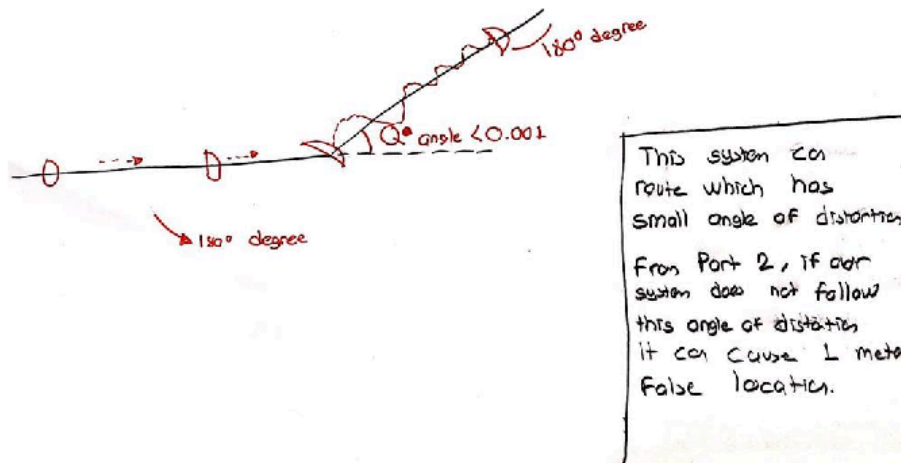 180° degree
angle <0.001
180° degree
This system can
route which has
small angle of distortion
From Part 2, if our
system does not follow
this angle of distortion
it can cause 1 mete
False location.